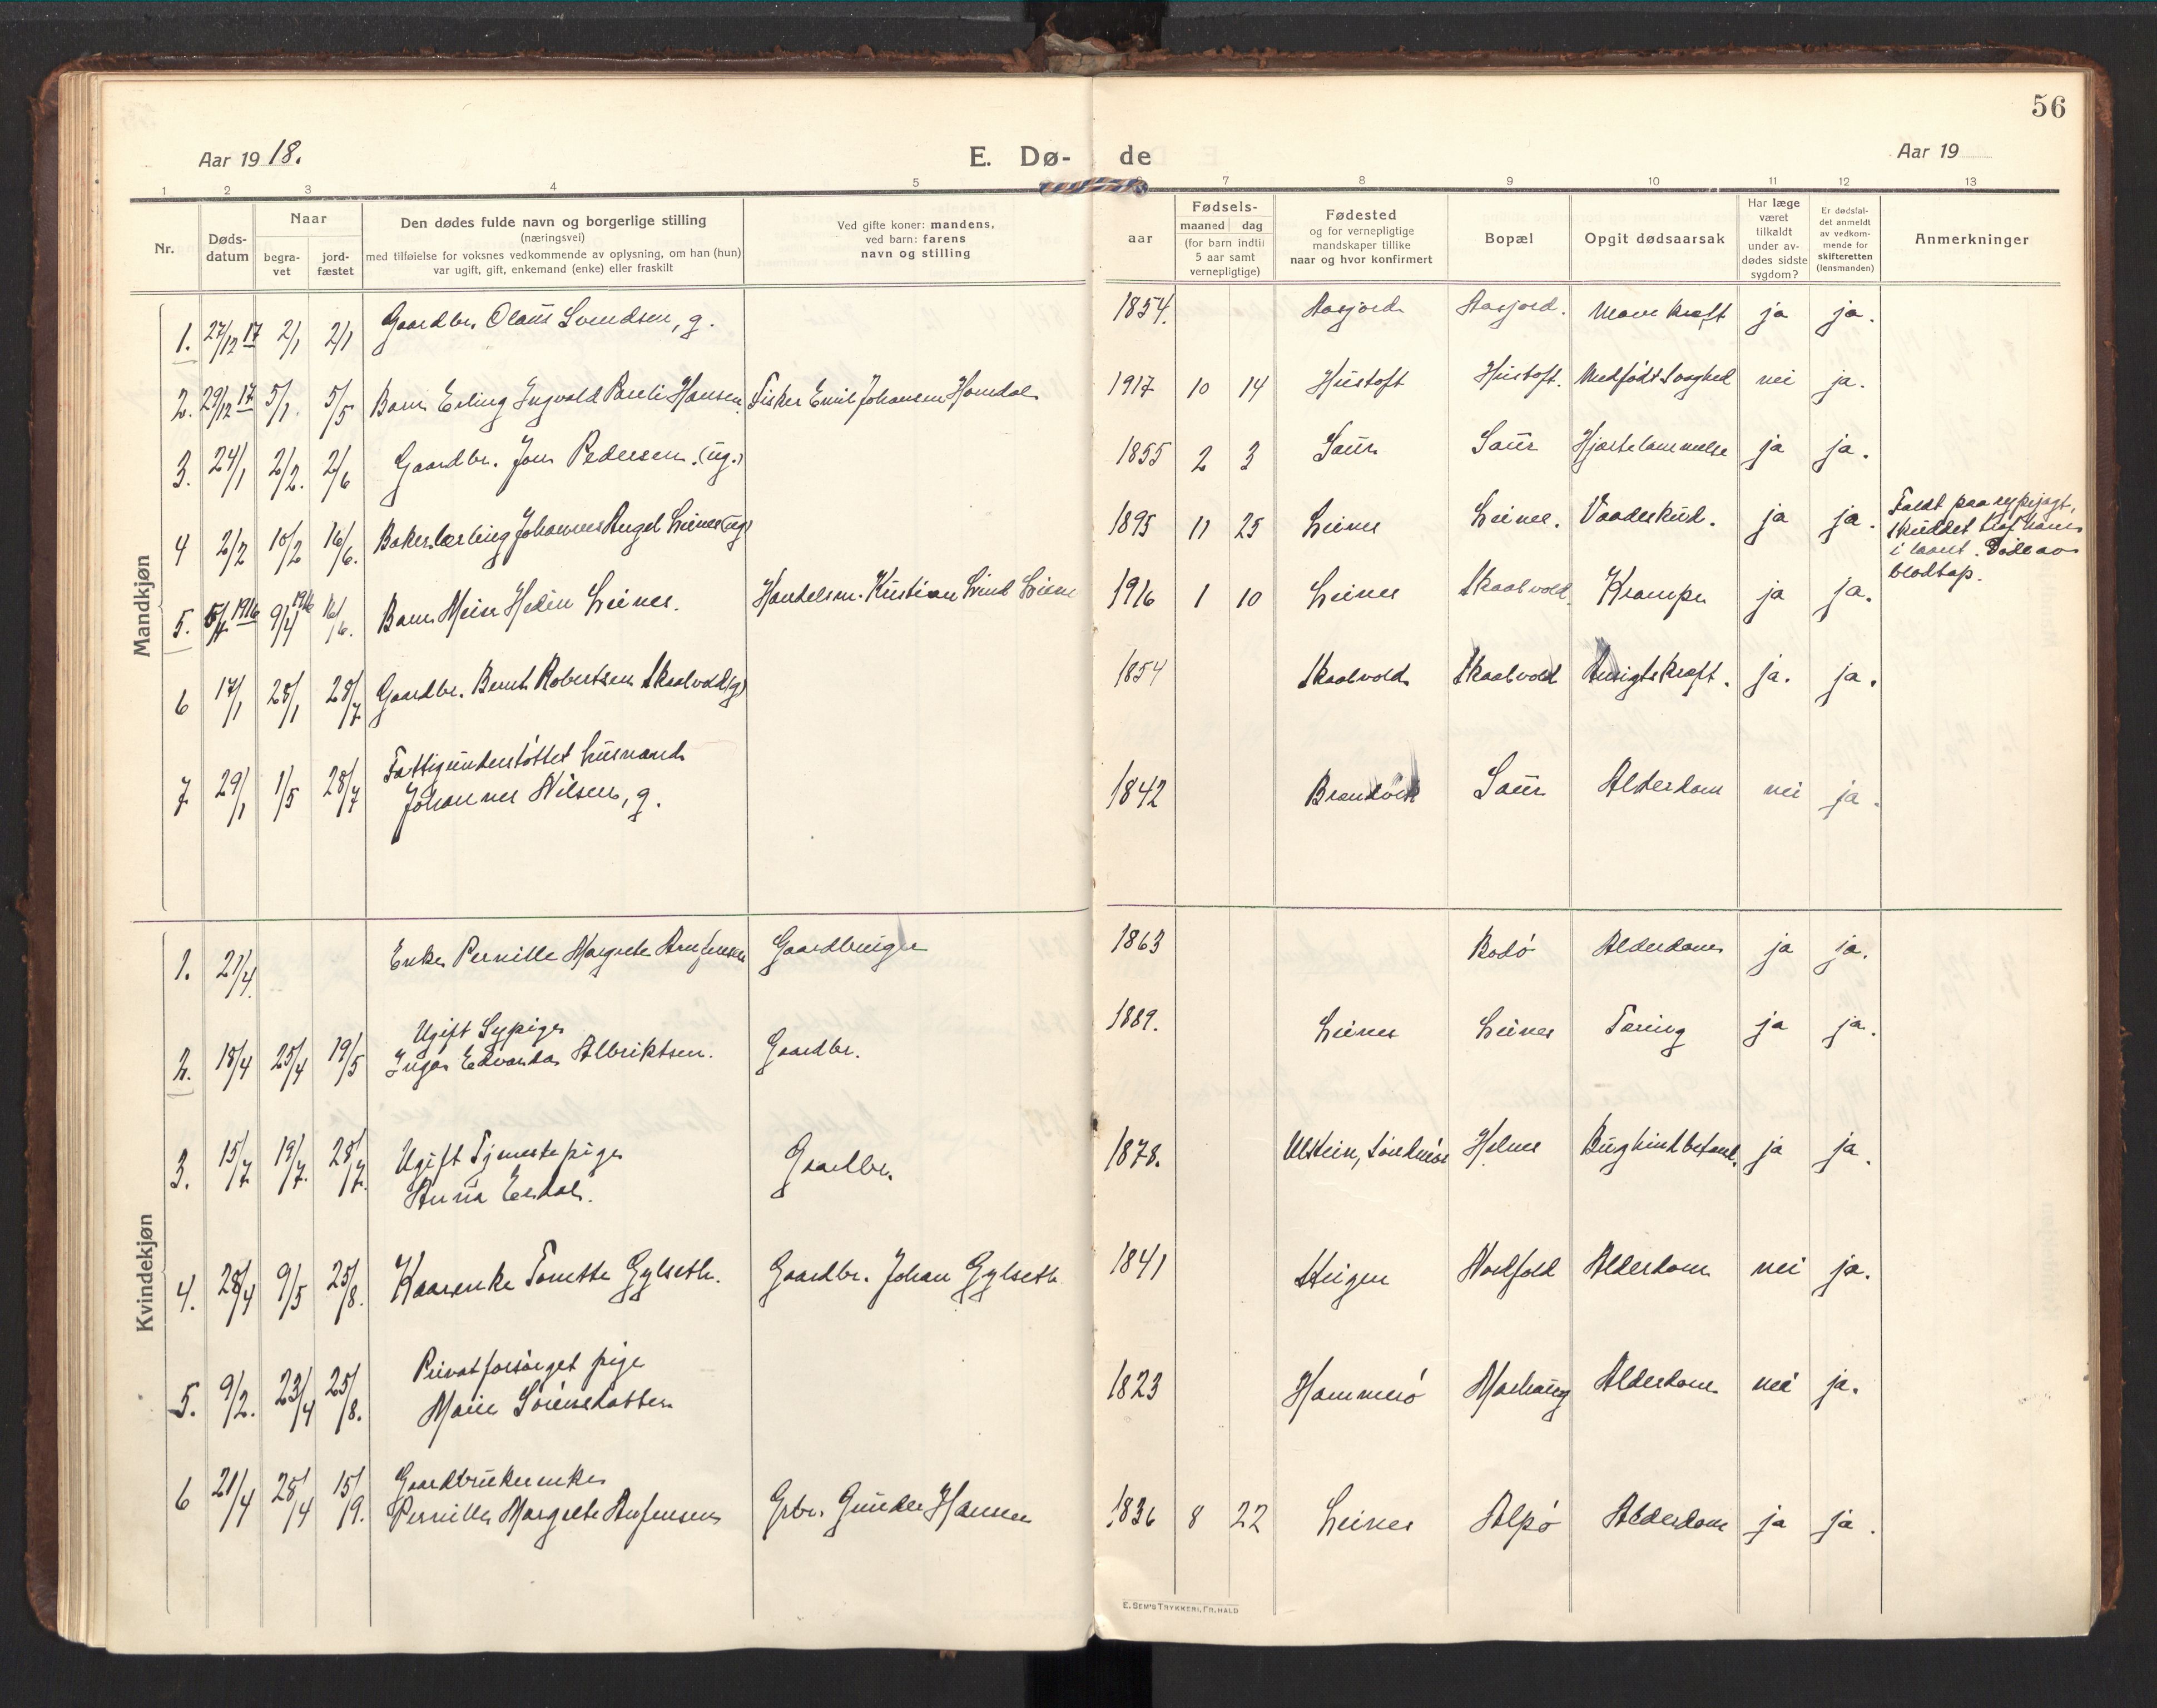 56
Aar 1918.
E. Dø- de
Aar 19
1 2 3 4 5 6 7 8 9 10 11 12 13
Nr.
Døds-
datum
Naar
begra-
vet
jord-
fæstet
Den dødes fulde navn og borgerlige stilling
(næringsvei)
med tilføielse for voksnes vedkommende av oplysning, om han (hun)
var ugift, gift, enkemand (enke) eller fraskilt
Ved gifte koner: mandens,
ved barn: farens
navn og stilling
aar
Fødsels-
maaned dag
(for barn indtil
5 aar samt
vernepligtige)
Fødested
og for vernepligtige
mandskaper tillike
naar og hvor konfirmert
Bopæl
Opgit dødsaarsak
Har læge
været
tilkaldt
under av-
dødes sidste
sygdom?
Er dødsfal-
det anmeldt
av vedkom-
mende for
skifteretten
(lensmanden)
Anmerkninger
Mandkjøn
1. 27/12 17 2/1 2/1 Gaardbr. Olaus Svendsen, g. 1854. Aasjord Aasjord. Mavekræft ja ja.
2. 29/12 17 5/1. 5/5 Barn Erling Ingvald Pareli Hansen. Fisker Emil Johansen Homdal 1917 10 14 Hustoft Hustoft. Medfödt Svaghed nei ja.
3. 24/1 2/2. 2/6 Gaardbr. Jon Pedersen. (ug.) 1855 2 3 Saur Saur Hjertelammelse ja ja.
4 2/2 10/2 16/6. Bakerlærling Johannes Angel Leines (ug) 1895 11 25 Leines Leines. Vaadeskud. ja ja.
Faldt paa rypejagt,
skuddet traf ham
i laaret. Døde av
blodtap.
5. 5/4 1916 9/4 1916 16/6. Barn Meier Hedin Leines. Handelsm. Kristian Lind Leines 1916 1 10 Leines Skaalvold. Krampe ja ja.
6 17/1 28/1 28/7 Gaardbr. Bernt Robertsen Skaalvold (g) 1854 Skaalvold Skaalvold Ansigtskræft. ja. ja.
7 29/1 1/5 28/7 Fattigunderstöttet husmand
Johannes Nilsen, g. 1842 Brandvik Saur Alderdom nei ja.
Kvindekjøn
1. 21/4. Enke Pernille Margrete Arntzen Gaardbruger 1863 Bodö Alderdom ja ja.
2. 18/4 25/4 19/5 Ugift Sypige
Inga Edvarda Albriktsen. Gaardbr. 1889. Leines Leines Tæring ja ja.
3. 15/7 19/7. 28/7. Ugift Tjenestepige
Anna Eidal. Gaardbr. 1878. Ulstein, Söndmör Helnes Bughindbetænd. ja ja.
4. 28/4 9/5 25/8. Kaarenke Tonette Gylseth. Gaardbr. Johan Gylseth 1841 Steigen Nordfold Alderdom nei ja.
5. 9/2. 23/4 25/8. Privatforsörget pige
Marie Sörensdatter 1823 Hammerö Morhaug Alderdom nei ja.
6 21/4 28/4 15/9. Gaardbrukerenke
Pernille Margrete Grbr. Gunder Hansen 1836 8 22 Leines Alpö Alderdom ja ja.
E. SEM'S TRYKKERI, FR.HALD